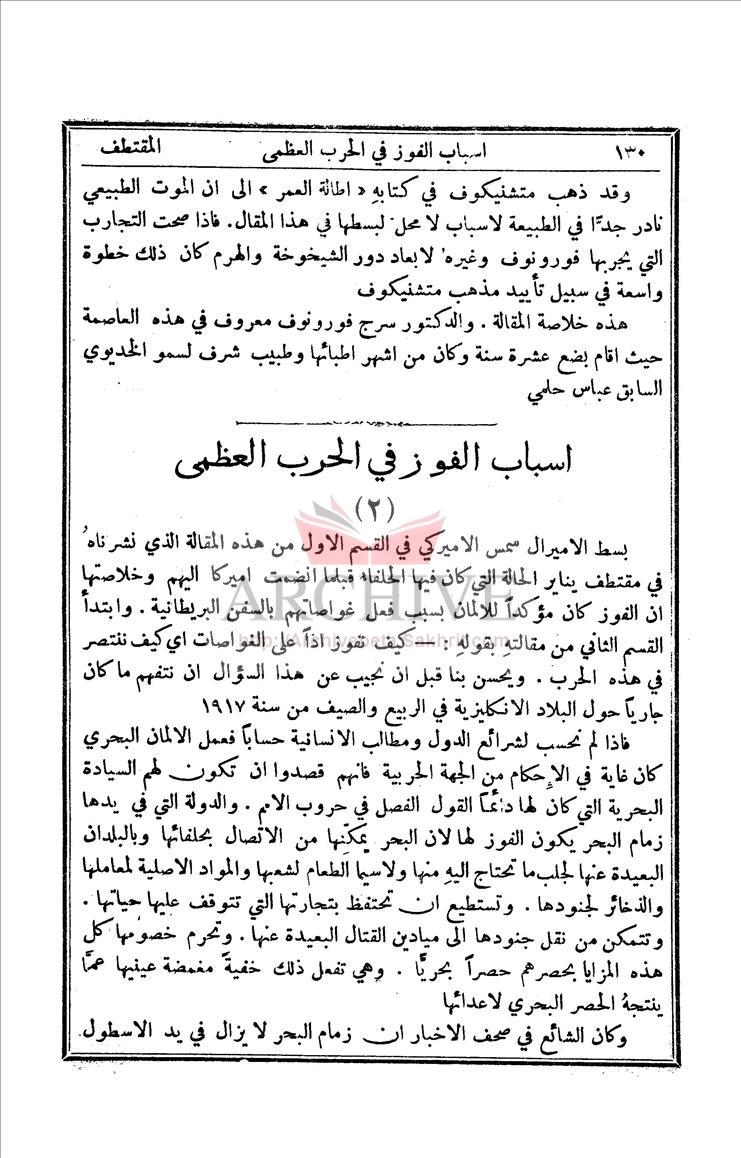 ١٣٠ اسباب الفوز في الحرب العظمى المقتطف
وقد ذهب متشنيكوف في كتابهِ « اطالة العمر » الى ان الموت الطبيعي
نادر جدًّا في الطبيعة لاسباب لا محل لبسطها في هذا المقال. فاذا صحت التجارب
التي يجربها فورونوف وغيرهُ لابعاد دور الشيخوخة والهرم كان ذلك خطوة
واسعة في سبيل تأييد مذهب متشنيكوف
هذه خلاصة المقالة . والدكتور سرج فورونوف معروف في هذه العاصمة
حيث اقام بضع عشرة سنة وكان من اشهر اطبائها وطبيب شرف لسمو الخديوي
السابق عباس حلمي
اسباب الفوز في الحرب العظمى
(٢)
بسط الاميرال سمس الاميركي في القسم الاول من هذه المقالة الذي نشرناهُ
في مقتطف يناير الحالة التي كان فيها الحلفاء قبلما انضمت اميركا اليهم وخلاصتها
ARCHIVE
ان الفوز كان مؤكداً للالمان بسبب فعل غواصاتهم بالسفن البريطانية . وابتدأ
القسم الثاني من مقالتهِ بقولهِ : — كيف نفوز اذاً على الغواصات اي كيف ننتصر
http://Archivebeta.Sakhrit.com
في هذه الحرب . ويحسن بنا قبل ان نجيب عن هذا السؤال ان نتفهم ما كان
جارياً حول البلاد الانكليزية في الربيع والصيف من سنة ١٩١٧
فاذا لم نحسب لشرائع الدول ومطالب الانسانية حساباً فعمل الالمان البحري
كان غاية في الإحكام من الجهة الحربية فانهم قصدوا ان تكون لهم السيادة
البحرية التي كان لها دائماً القول الفصل في حروب الامم . والدولة التي في يدها
زمام البحر يكون الفوز لها لان البحر يمكّنها من الاتصال بحلفائها وبالبلدان
البعيدة عنها لجلب ما تحتاج اليهِ منها ولاسيما الطعام لشعبها والمواد الاصلية لمعاملها
والذخائر لجنودها . وتستطيع ان تحتفظ بتجارتها التي تتوقف عليها حياتها .
وتتمكن من نقل جنودها الى ميادين القتال البعيدة عنها . وتحرم خصومها كل
هذه المزايا بحصرهم حصراً بحريًّا . وهي تفعل ذلك خفيةً مغمضة عينيها عمَّا
ينتجهُ الحصر البحري لاعدائها
وكان الشائع في صحف الاخبار ان زمام البحر لا يزال في يد الاسطول